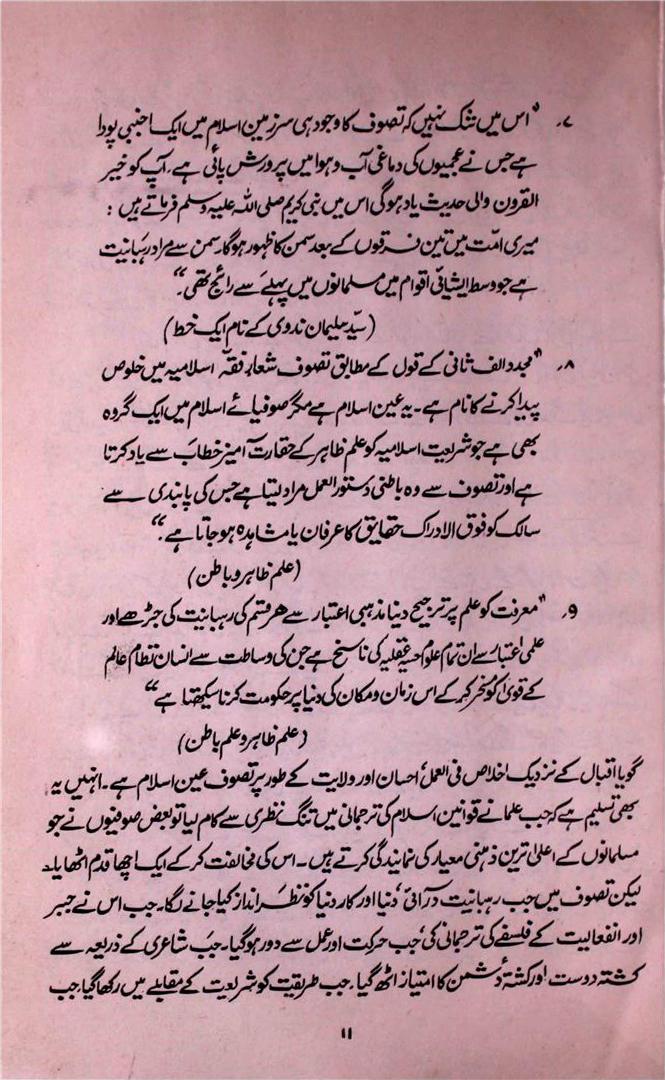 ۷۔ "اس میں شک نہیں کہ تصوف کا وجود ہی سرزمین اسلام میں ایک اجنبی پودا
ہے جس نے عجمیوں کی دماغی آب و ہوا میں پرورش پائی ہے، آپ کو خیر
القرون والی حدیث یاد ہوگی اس میں نبی کریم صلی اللہ علیہ وسلم فرماتے ہیں :
میری امّت میں تین فرقوں کے بعد سمن کا ظہور ہوگا۔ سمن سے مراد رہبانیت
ہے جو وسط ایشیائی اقوام میں مسلمانوں میں پہلے سے رائج تھی۔"
(سیّد سلیمان ندوی کے نام ایک خط)
۸۔ "مجدد الف ثانی کے قول کے مطابق تصوف شعائر فقہ اسلامیہ میں خلوص
پیدا کرنے کا نام ہے۔ یہ عین اسلام ہے مگر صوفیائے اسلام میں ایک گروہ
بھی ہے جو شریعت اسلامیہ کو علم ظاہر کے حقارت آمیز خطاب سے یاد کرتا
ہے اور تصوف سے وہ باطنی دستور العمل مراد لیتا ہے جس کی پابندی سے
سالک کو فوق الادراک حقایق کا عرفان یا مشاہدہ ہو جاتا ہے۔"
(علم ظاہر و باطن)
۹۔ "معرفت کو علم پر ترجیح دینا مذہبی اعتبار سے ہر قسم کی رہبانیت کی جڑ ہے اور
علمی اعتبار سے ان تمام علوم حسیہ عقلیہ کی ناسخ ہے جن کی وساطت سے انسان نظام عالم
کے قویٰ کو مسخر کر کے اس زمان و مکان کی دنیا پر حکومت کرنا سیکھتا ہے"
(علم ظاہر و علم باطن)
گویا اقبال کے نزدیک اخلاص فی العمل، احسان اور ولایت کے طور پر تصوف عین اسلام ہے۔ انہیں یہ
بھی تسلیم ہے کہ جب علما نے قوانین اسلام کی ترجمانی میں تنگ نظری سے کام لیا تو بعض صوفیوں نے جو
مسلمانوں کے اعلیٰ ترین ذہنی معیار کی نمایندگی کرتے ہیں۔ اس کی مخالفت کر کے ایک اچھا قدم اٹھایا۔
لیکن تصوف میں جب رہبانیت در آئی، دنیا اور کار دنیا کو نظر انداز کیا جانے لگا۔ جب اس نے جبر
اور انفعالیت کے فلسفے کی ترجمانی کی، جب حرکت اور عمل سے دور ہو گیا۔ جب شاعری کے ذریعہ سے
کشتہ دوست اور کشتہ دشمن کا امتیاز اٹھ گیا۔ جب طریقیت کو شریعت کے مقابلے میں رکھا گیا، جب
۱۱